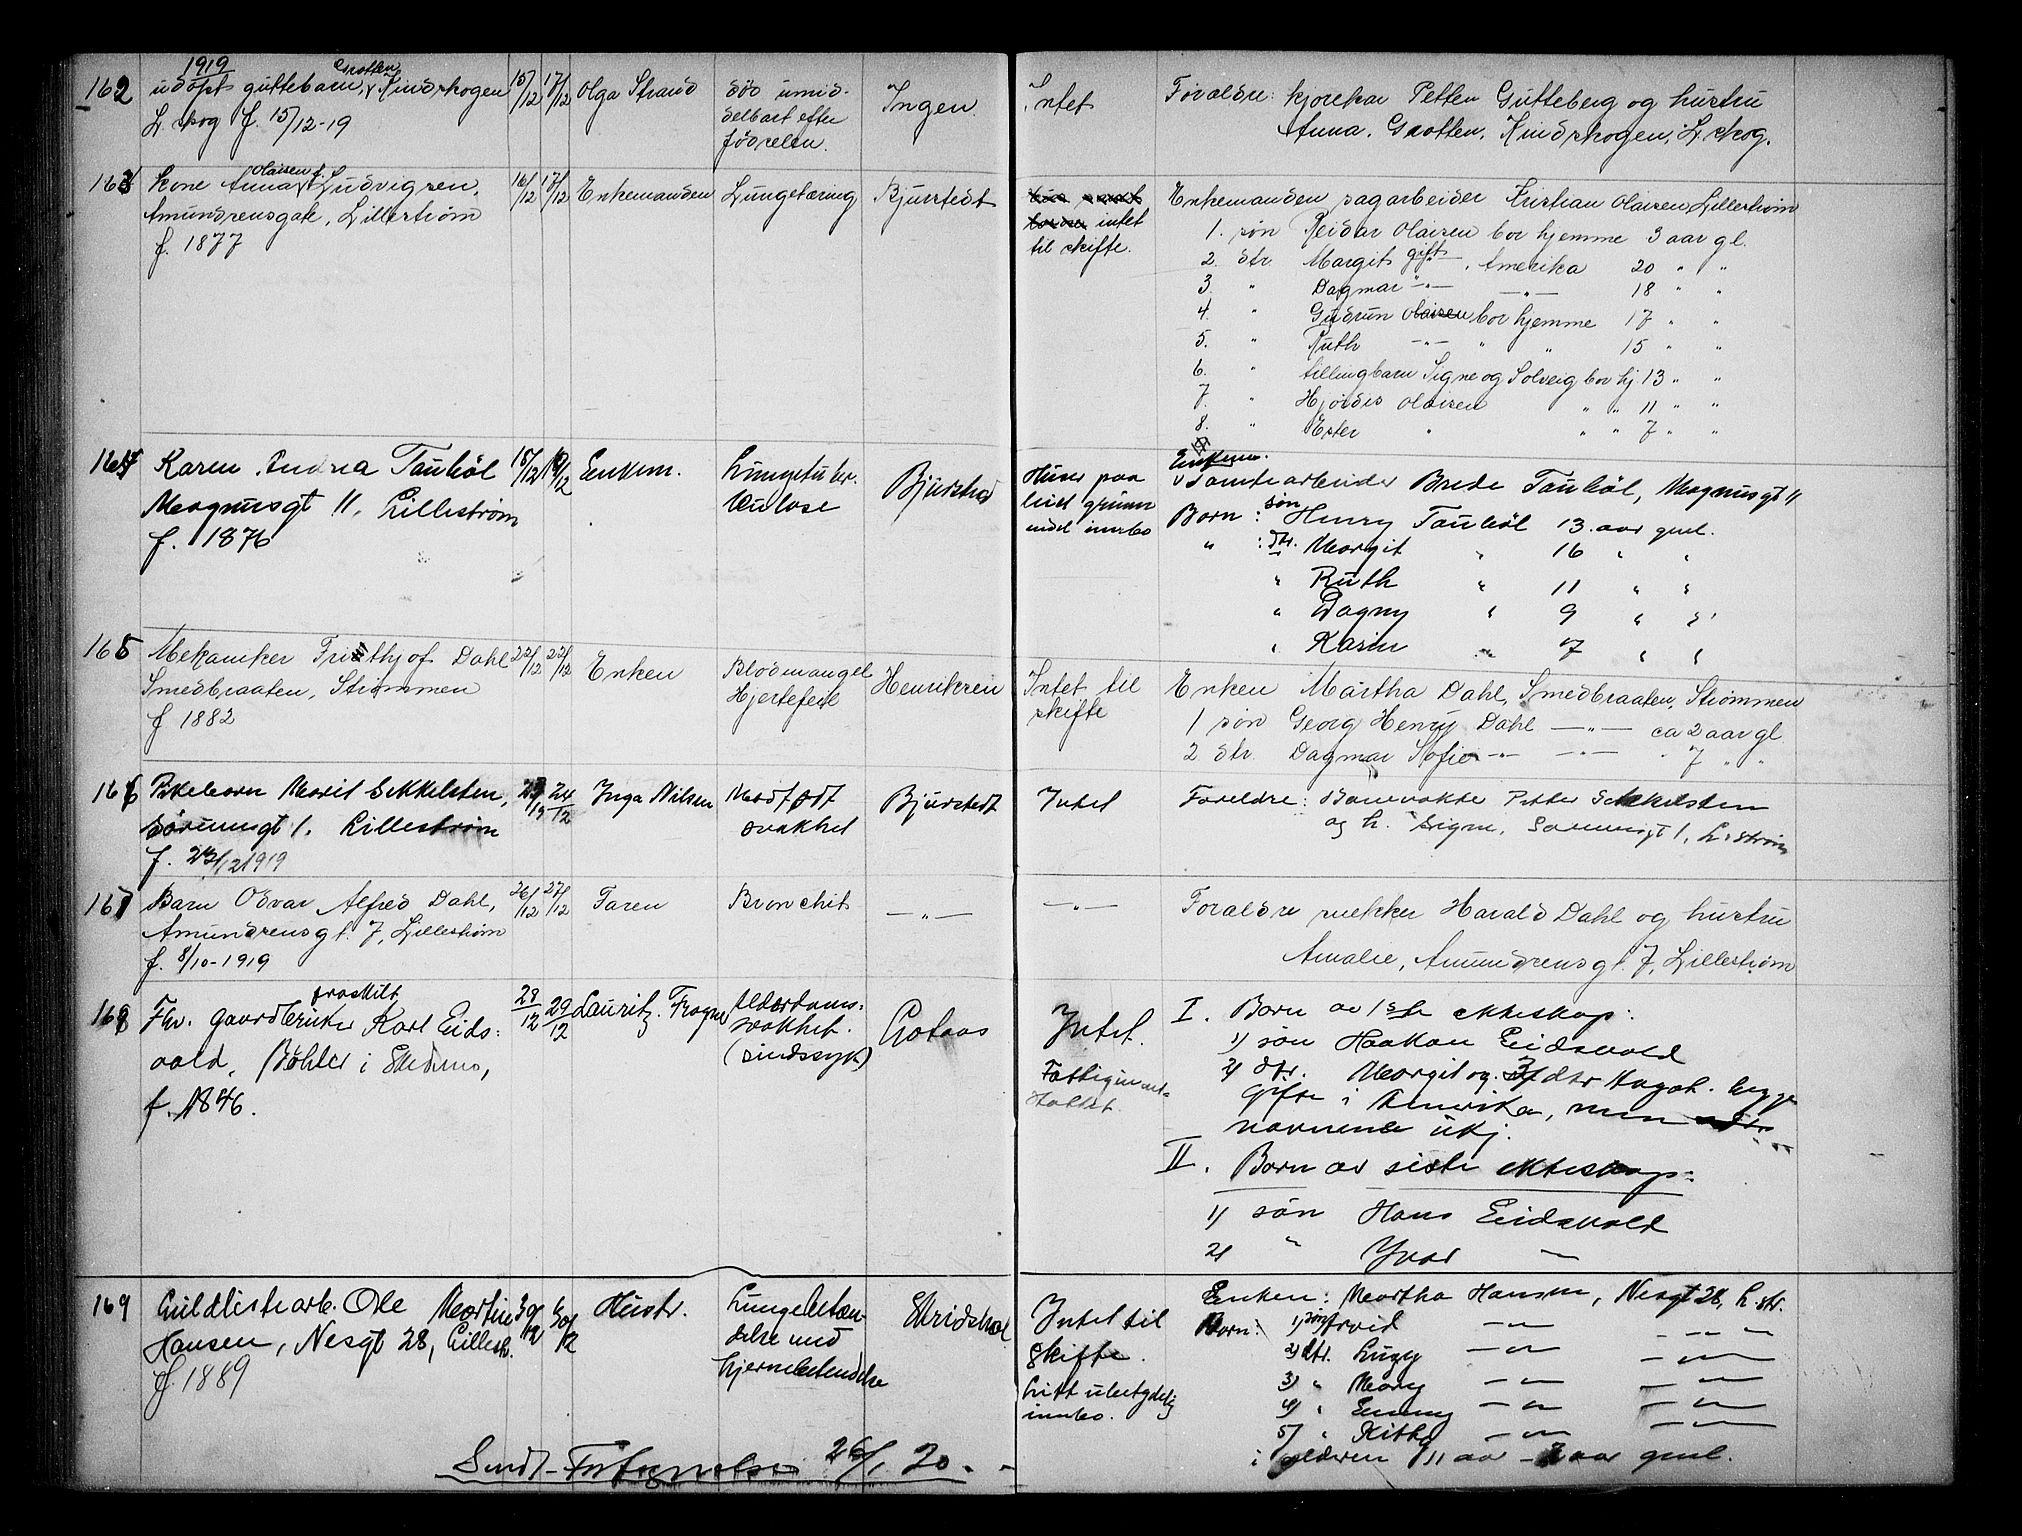 1919
162 udøpt guttebarn, Grotten, Kindskogen 15/12 17/12 Olga Strand død umid- Ingen. Intet Forældre: kjørekar Petter Gutteberg og hustru
L.skog f. 15/12-19 delbart efter Anna, Grotten, Kindskogen, L.skog.
fødselen.
163 Kone Anna Olaisen f. Ludvigsen, 16/12 17/12 Enkemanden Lungetæring Bjurstedt intet Enkemanden sagarbeider Kristian Olaisen Lillestrøm
Amundsensgate, Lillestrøm til skifte. 1. søn Reidar Olaisen bor hjemme 3 aar gl.
f. 1877 2. dtr. Margit gift —, Amerika 20 " "
3. " Dagmar —"— —"— 18 " "
4. " Gudrun Olaisen bor hjemme 17 " "
5. " Ruth —"— " " 15 " "
6. " tvillingbarn Signe og Solveig bor hj 13 " "
7. " Hjørdis Olaisen " " 11 " "
8. " Ester " " " 7 " "
164 Karen Andrea Tauböl 15/12 18/12 Enkem. Lungetuber- Bjurstedt Huser paa Enkem. Tomtearbeider Brede Tauböl, Magnusgt 11
Magnusgt 11, Lillestrøm kulose leid grunn Barn: søn Henry Tauböl 13 aar gml.
f. 1876 med innbo " : dtr. Margit " 16 " "
" Ruth " 11 " "
" Dagny " 9 " "
" Karin " 7 " "
165 Mekaniker Frithjof Dahl 22/12 22/12 Enken Blodmangel Henriksen Intet til Enken Märtha Dahl, Smedbraaten, Strømmen
Smedbraaten, Strømmen Hjertefeil skifte 1 søn Georg Henry Dahl —"— ca 2 aar gl.
f 1882 2 dtr. Dagmar Sofie —"— —"— " 7 " "
166 Pikebarn Marit Sekkelsten, 23/12 24/12 Inga Nilsen Medfødt Bjurstedt Intet Foreldre: Banevokte Petter Sekkelsten
Sørumsgt 1. Lillestrøm svakhet og h. Signe, Sørumsgt 1, L.strøm
f. 23/12 1919
167 Barn Odvar Alfred Dahl, 26/12 27/12 Faren Bronchit —"— —"— Forældre snekker Harald Dahl og hustru
Amundsensgt. 7, Lillestrøm Amalie, Amundsensgt. 7, Lillestrøm
f. 8/10-1919
168 Fhv. gaardbruker fraskilt Karl Eids- 28/12 29/12 Lauritz Fragner Alderdoms- Gotaas Intet. I. Barn av 1ste ekteskap:
vold, Böhler i Skedsmo, svakhet. 1) søn Haakon Eidsvold
f. 1846. (sindssyk) 2) dtr. Margit og 3) dtr Aagot. begge
gifte i Amerika, men
navnene ukj.
II. Barn av siste ekteskap:
1) søn Hans Eidsvold
2) " Yvar —
169 Ole Martin 30/12 30/12 Hustr. Lungebeten- Skridshol Intet til Enken: Martha Hansen, Nesgt 28, L.str.
Hansen, Nesgt 28, Lillestr. delse med skifte. Barn: 1) søn Arvid —"— —"—
f 1889 hjernebetendelse 2) dtr. Lucy —"— —"—
Litt ubetydelig 3) " Mary —"— —"—
innbo. 4) " Emmy —"— —"—
5) " —"— —"—
i alderen 11 aar – 2 aar gml.
Sendt Fortegnelse 26/1 20.